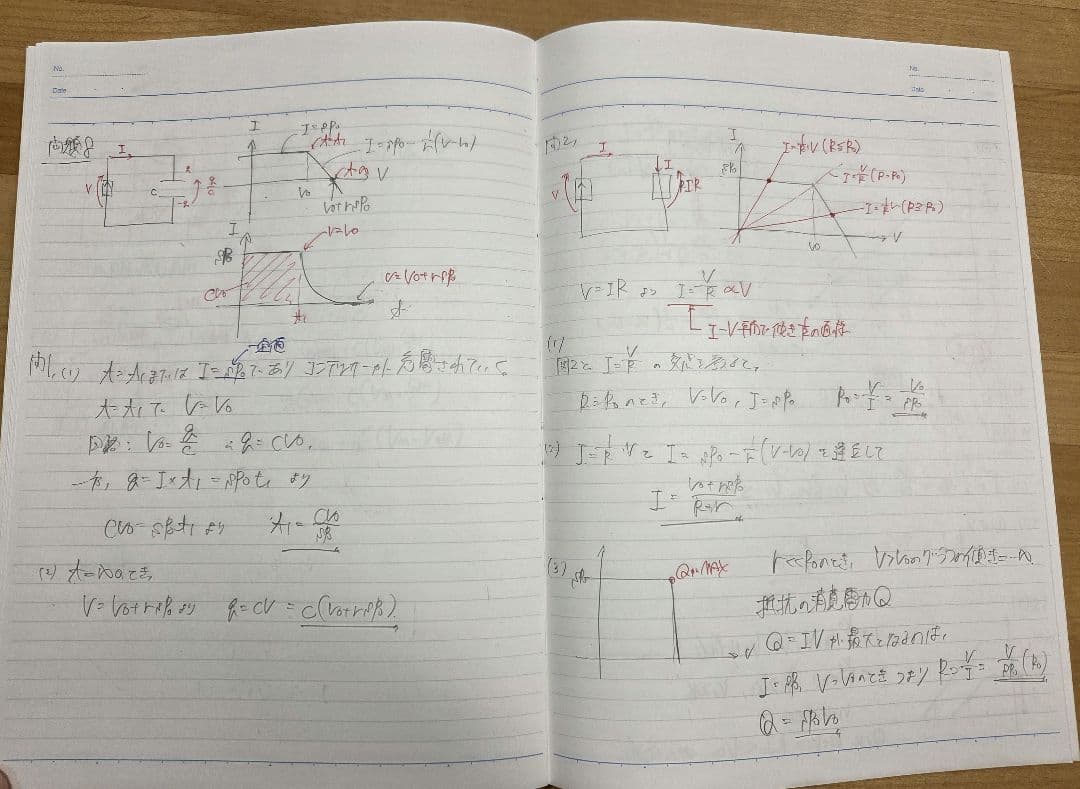 No.
Date
問題8
I
V
C
I
I=sP₀
I=sP₀-1/r(V-V₀)
V
V₀
V₀+rsP₀
I
V=V₀
sP₀
CV₀
V=V₀+rsP₀
t₁
t
問1, (1) t=t₁までは I=sP₀であり コンデンサーが充電されていく
t=t₁で V=V₀
回路: V₀=q/C ∴q=CV₀.
一方, q=I×t₁=sP₀t₁ より
CV₀=sP₀t₁より t₁=CV₀/sP₀
(2) t=∞のとき
V=V₀+rsP₀より q=CV=C(V₀+rsP₀).
No.
Date
問2,
I
V
I
RIR
I
sP₀
I=1/R V (R≦R₀)
I=V/R (R=R₀)
I=1/R V (R≧R₀)
V₀
V
V=IR より I=V/R ∝V
I-V平面で傾き1/Rの直線
(1)
図2と I=V/R の交点を考えて,
R=R₀のとき, V=V₀, I=sP₀ R₀=V/I=V₀/sP₀
(2) I=1/R Vと I=sP₀-1/r(V-V₀)を連立して
I=(V₀+rsP₀)/(R+r)
(3)
sP₀
QがMAX
V
r<<R₀のとき, V>V₀のグラフの傾き=-∞
抵抗の消費電力Q
Q=IVが最大となるのは,
I=sP₀, V=V₀のとき つまり R=V/I=V/sP₀(R₀)
Q=sP₀V₀